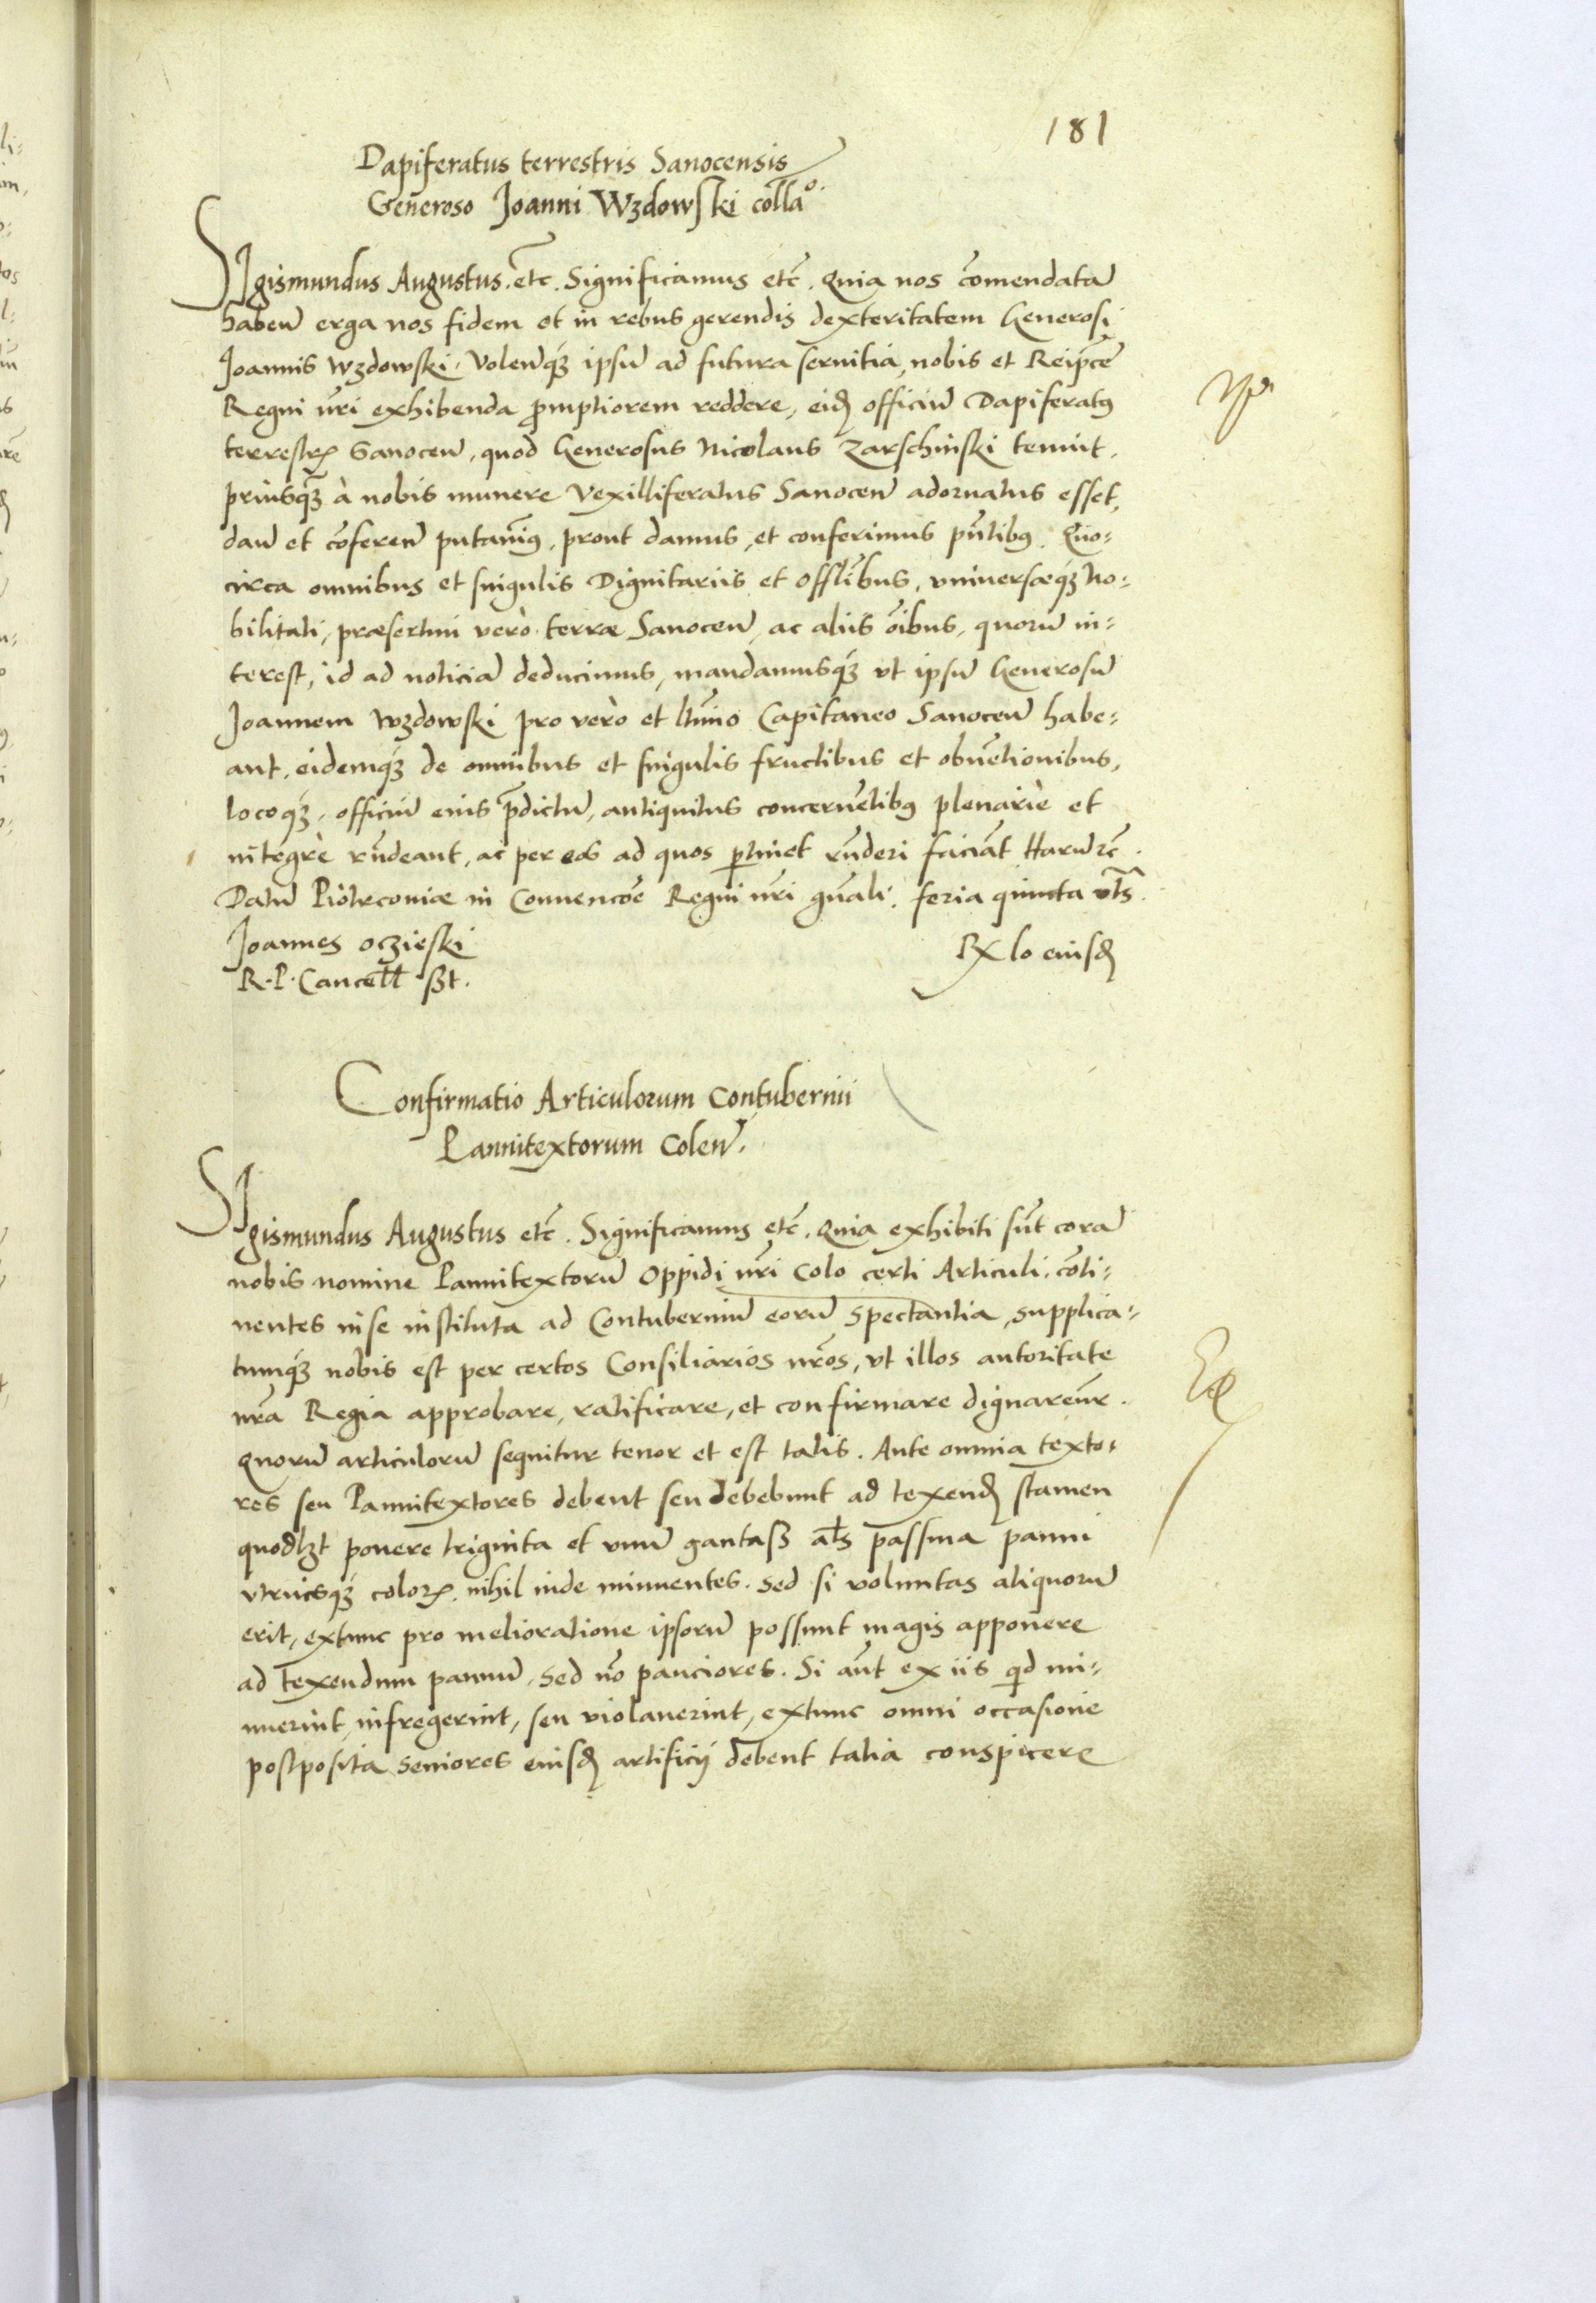 181
Dapiferatus terrestris Sanocensis
Generoso Joanni Wzdowski coll̃aᵒ.
SIgismundus Augustus. etc̃. Significamus etc̃. Quia nos com̃endatã
habeñ erga nos fidem et in rebus gerendis dexteritatem Generosi
Joannis Wzdowski. Volenq́ʒ ipsũ ad futura seruitia, nobis et Reipcẽ
Regni nr̃i exhibenda ꝓmptiorem reddere, eidꝫ officiũ Dapiferatꝰ
terrestrꝭ Sanoceñ, quod Generosus Nicolaus Zarschinski tenuit,
priusq̃ʒ à nobis munere Vexilliferatus Sanoceñ adornatus esset,
dañ et cõfereñ putauimꝰ, prout damus, et conferimus pñtibꝰ. Quo:
circa omnibus et singulis Dignitariis et Offl̃ibus, vniuersæq́ʒ No:
bilitati, præsertim verò terræ Sanoceñ, ac aliis oĩbus, quorũ in:
terest, id ad noticiã deducimus, mandamusq́ʒ vt ipsũ Generosũ
Joannem Wzdowski pro vero et ltĩmo Capitaneo Sanoceñ habe:
ant, eidemq́ʒ de omnibus et singulis fructibus et obuẽtionibus,
locoq́ʒ, officiũ eius p̃dictũ, antiquitus concernẽtibꝰ plenariè et
integrè rñdeant, ac per eos ad quos ꝑtinet rñderi faciãt Harũ rc̃.
Datũ Piotrconiæ in Conuencõe Regni nr̃i gñali, feria quinta vts̃.
Joannes Oczieski
R. P. Cancell̃ sst.
Rx lo eiusdꝫ
Confirmatio Articulorum Contubernii
Pannitextorum Coleñ.
SIgismundus Augustus etc̃. Significamus etc̃. Quia exhibiti sũt corã
nobis nomine Pannitextorũ Oppidi nr̃i Colo certi Articuli, cõti:
nentes in se instituta ad Contuberniũ eorũ spectantia, supplica:
tumq́ʒ nobis est per certos Consiliarios nr̃os, vt illos autoritate
nr̃a Regia approbare, ratificare, et confirmare dignarem̃r.
Quorũ articulorũ sequitur tenor et est talis. Ante omnia texto:
res seu Pannitextores debent seu debebunt ad texendꝫ stamen
quodlʒt ponere triginta et vnũ gantass al̃s passma panni
vtriusq́ʒ colorꝭ. nihil inde minuentes. Sed si voluntas aliquorũ
erit, extunc pro melioratione ipsorũ possunt magis apponere
ad texendum pannũ, sed nõ pauciores. Si aũt ex iis qd mi:
nuerint, infregerint, seu violauerint, extunc omni occasione
postposita seniores eiusdꝫ artificij debent talia conspicere